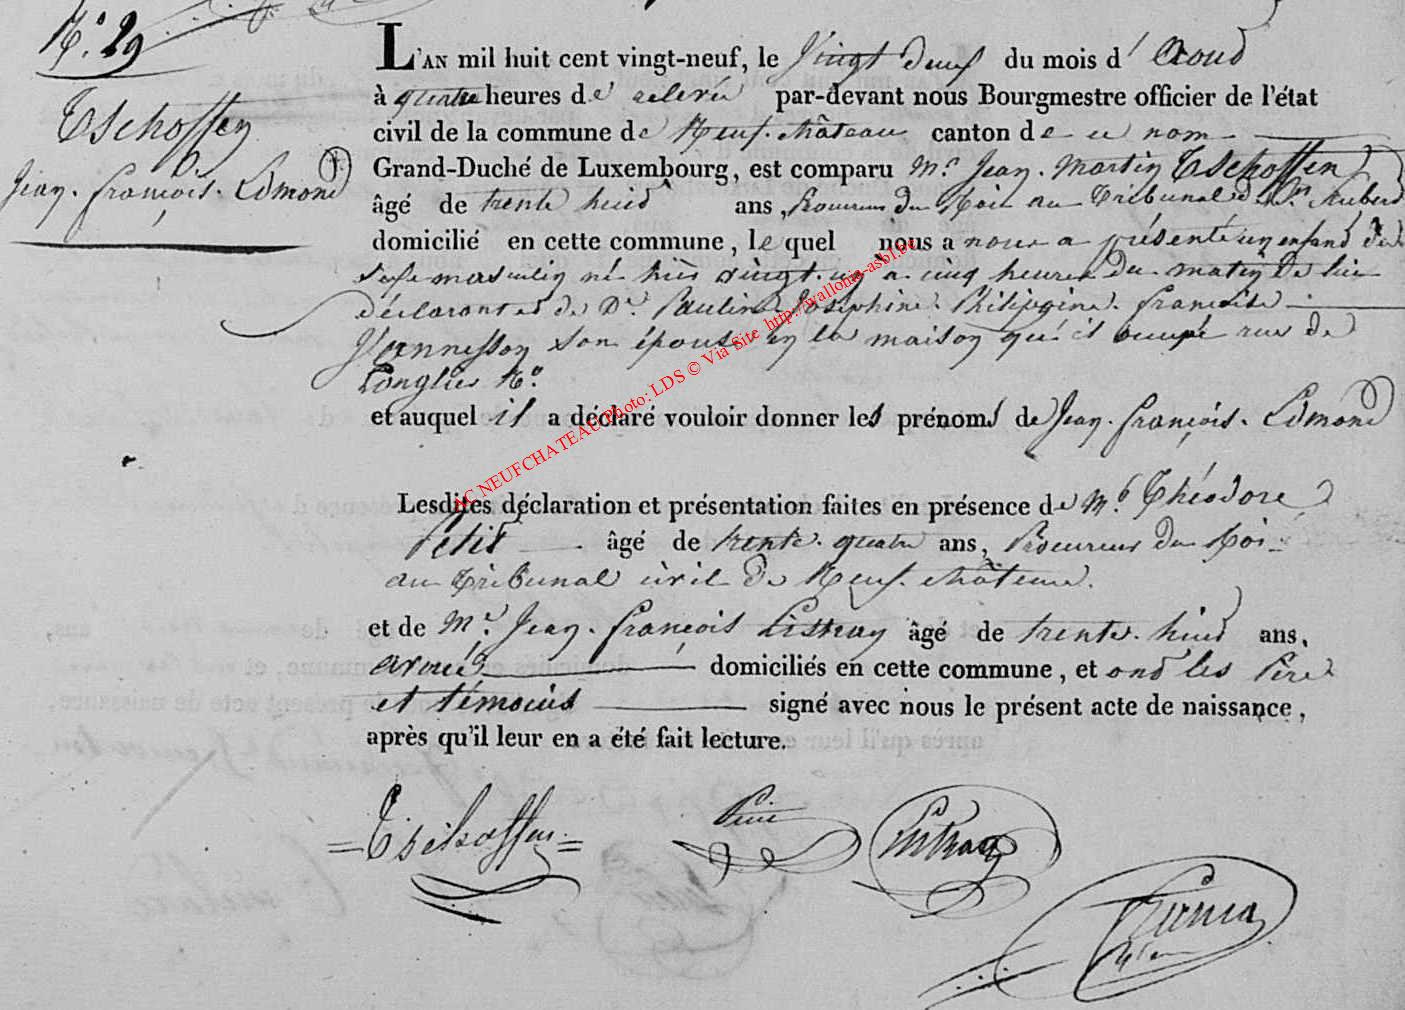 N.º 29
Tschoffen
Jean-françois-Edmond
L'AN mil huit cent vingt-neuf, le vingt deux du mois d'Aoud
à quatre heures de relevée par-devant nous Bourgmestre officier de l'état
civil de la commune de Neuf-château canton de ce nom
Grand-Duché de Luxembourg, est comparu Mr. Jean-Martin Tschoffen
âgé de trente huid ans, Procureur du Roi au Tribunal de St. Huberd
domicilié en cette commune, lequel nous a nous a présenté un enfand du
sexe masculin né hier vingt-un à cinq heures du matin de lui
déclarant et de De. Pauline Joséphine Philippine françoise
Jeannesson son épouse en la maison qu'il occupe rue de
Longlier No.
et auquel il a déclaré vouloir donner les prénoms de Jean-françois-Edmond
Lesdites déclaration et présentation faites en présence de Mr. Théodore
Petid âgé de trente-quatre ans, Procureur du Roi
au Tribunal civil de Neuf-château.
et de Mr. Jean-françois Listray âgé de trente-huid ans,
avoué domiciliés en cette commune, et ond les Père
et témoins signé avec nous le présent acte de naissance,
après qu'il leur en a été fait lecture.
Tschoffen
AC NEUFCHATEAU Photo: LDS © Via Site http://wallonia-asbl.be